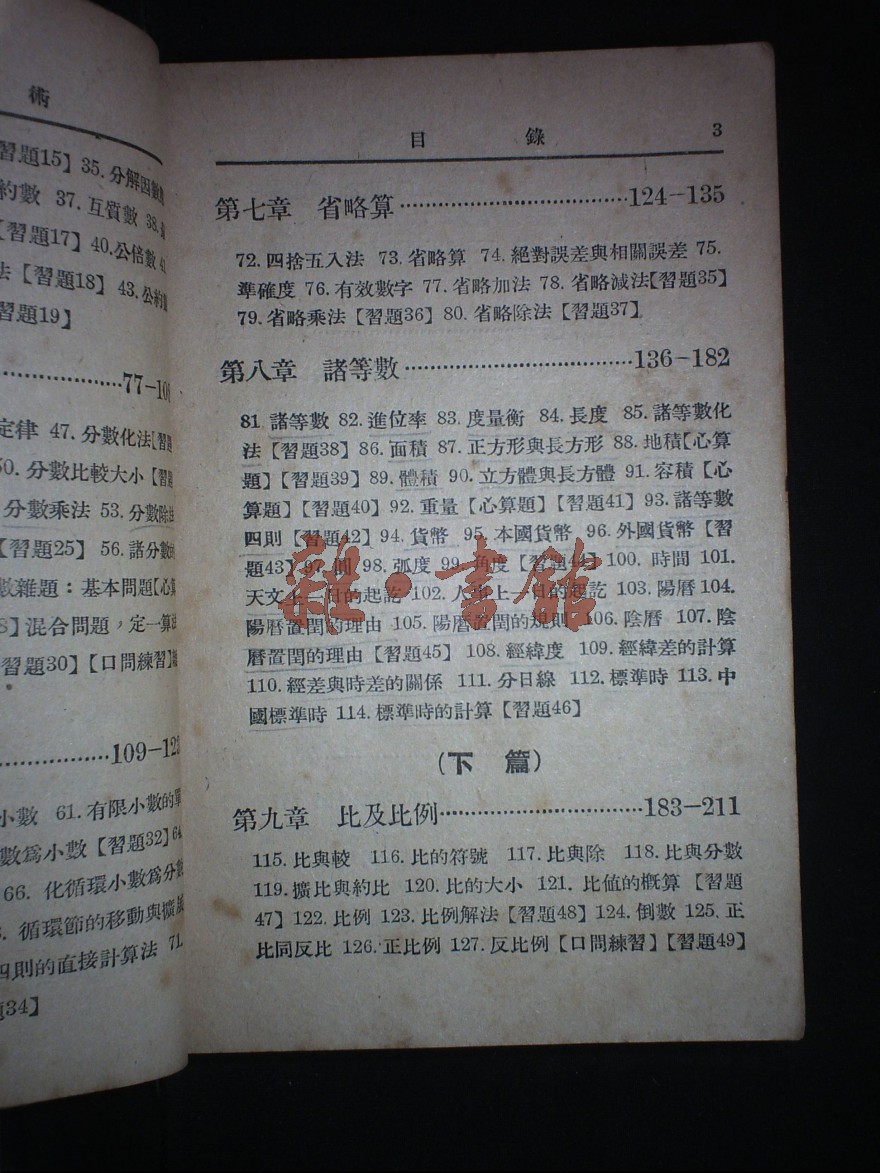 術
習題15】 35. 分解因數
約數 37. 互質數 38.
【習題17】 40. 公倍數
法【習題18】 43. 公約
習題19】
77-108
定律 47. 分數化法【習題
50. 分數比較大小【習題
分數乘法 53. 分數除法
【習題25】 56. 諸分數
數雜題：基本問題【心算
8】混合問題，定一算
習題30】【口問練習】
109-123
小數 61. 有限小數的
數爲小數【習題32】64.
66. 化循環小數爲分數
循環節的移動與擴
四則的直接計算法 71.
題34】
目 錄 3
第七章 省略算 124-135
72. 四捨五入法 73. 省略算 74. 絕對誤差與相關誤差 75.
準確度 76. 有效數字 77. 省略加法 78. 省略減法【習題35】
79. 省略乘法【習題36】 80. 省略除法【習題37】
第八章 諸等數 136-182
81 諸等數 82. 進位率 83. 度量衡 84. 長度 85. 諸等數化
法【習題38】 86. 面積 87. 正方形與長方形 88. 地積【心算
題】【習題39】 89. 體積 90. 立方體與長方體 91. 容積【心
算題】【習題40】 92. 重量【心算題】【習題41】 93. 諸等數
四則【習題42】 94. 貨幣 95. 本國貨幣 96. 外國貨幣【習
題43】 97. 圓 98. 弧度 99. 角度【習題44】 100. 時間 101.
天文上一日的起訖 102. 人事上一日的起訖 103. 陽曆 104.
陽曆置閏的理由 105. 陽曆置閏的規則 106. 陰曆 107. 陰
曆置閏的理由【習題45】 108. 經緯度 109. 經緯差的計算
110. 經差與時差的關係 111. 分日線 112. 標準時 113. 中
國標準時 114. 標準時的計算【習題46】
（下 篇）
第九章 比及比例 183-211
115. 比與較 116. 比的符號 117. 比與除 118. 比與分數
119. 擴比與約比 120. 比的大小 121. 比値的概算【習題
47】 122. 比例 123. 比例解法【習題48】 124. 倒數 125. 正
比同反比 126. 正比例 127. 反比例【口問練習】【習題49】
雜·書館